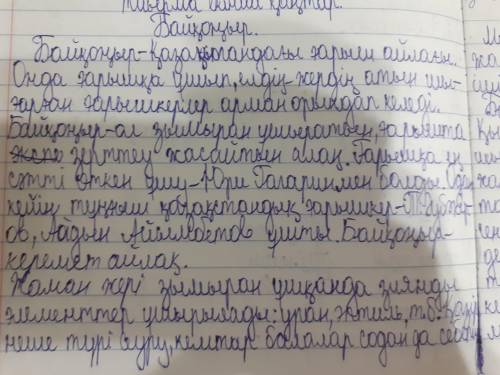 жиырма екінші қаңтар.
Байқоңыр.
Байқоңыр-қазақстандағы ғарыш айлағы.
Онда ғарышқа ұшып, елдің-жердің атын шы-
ғарған ғарышкерлер арман орындап келеді.
Байқоңыр-ол зымыран ұшыратын, ғарышта
зерттеу жасайтын алаң. Ғарышқа ең
сәтті өткен ұшу-Юри Гагаринмен болды. Одан
кейін тұңғыш қазақстандық ғарышкер-
ов, Айдын Айымбетов ұшты. Байқоңыр-
керемет айлақ.
Жаман жері зымыран ұшқанда зиянды
элементтер ұшырылады: уран, т.б.
неше түрі ауру, кемтар балалар содан да